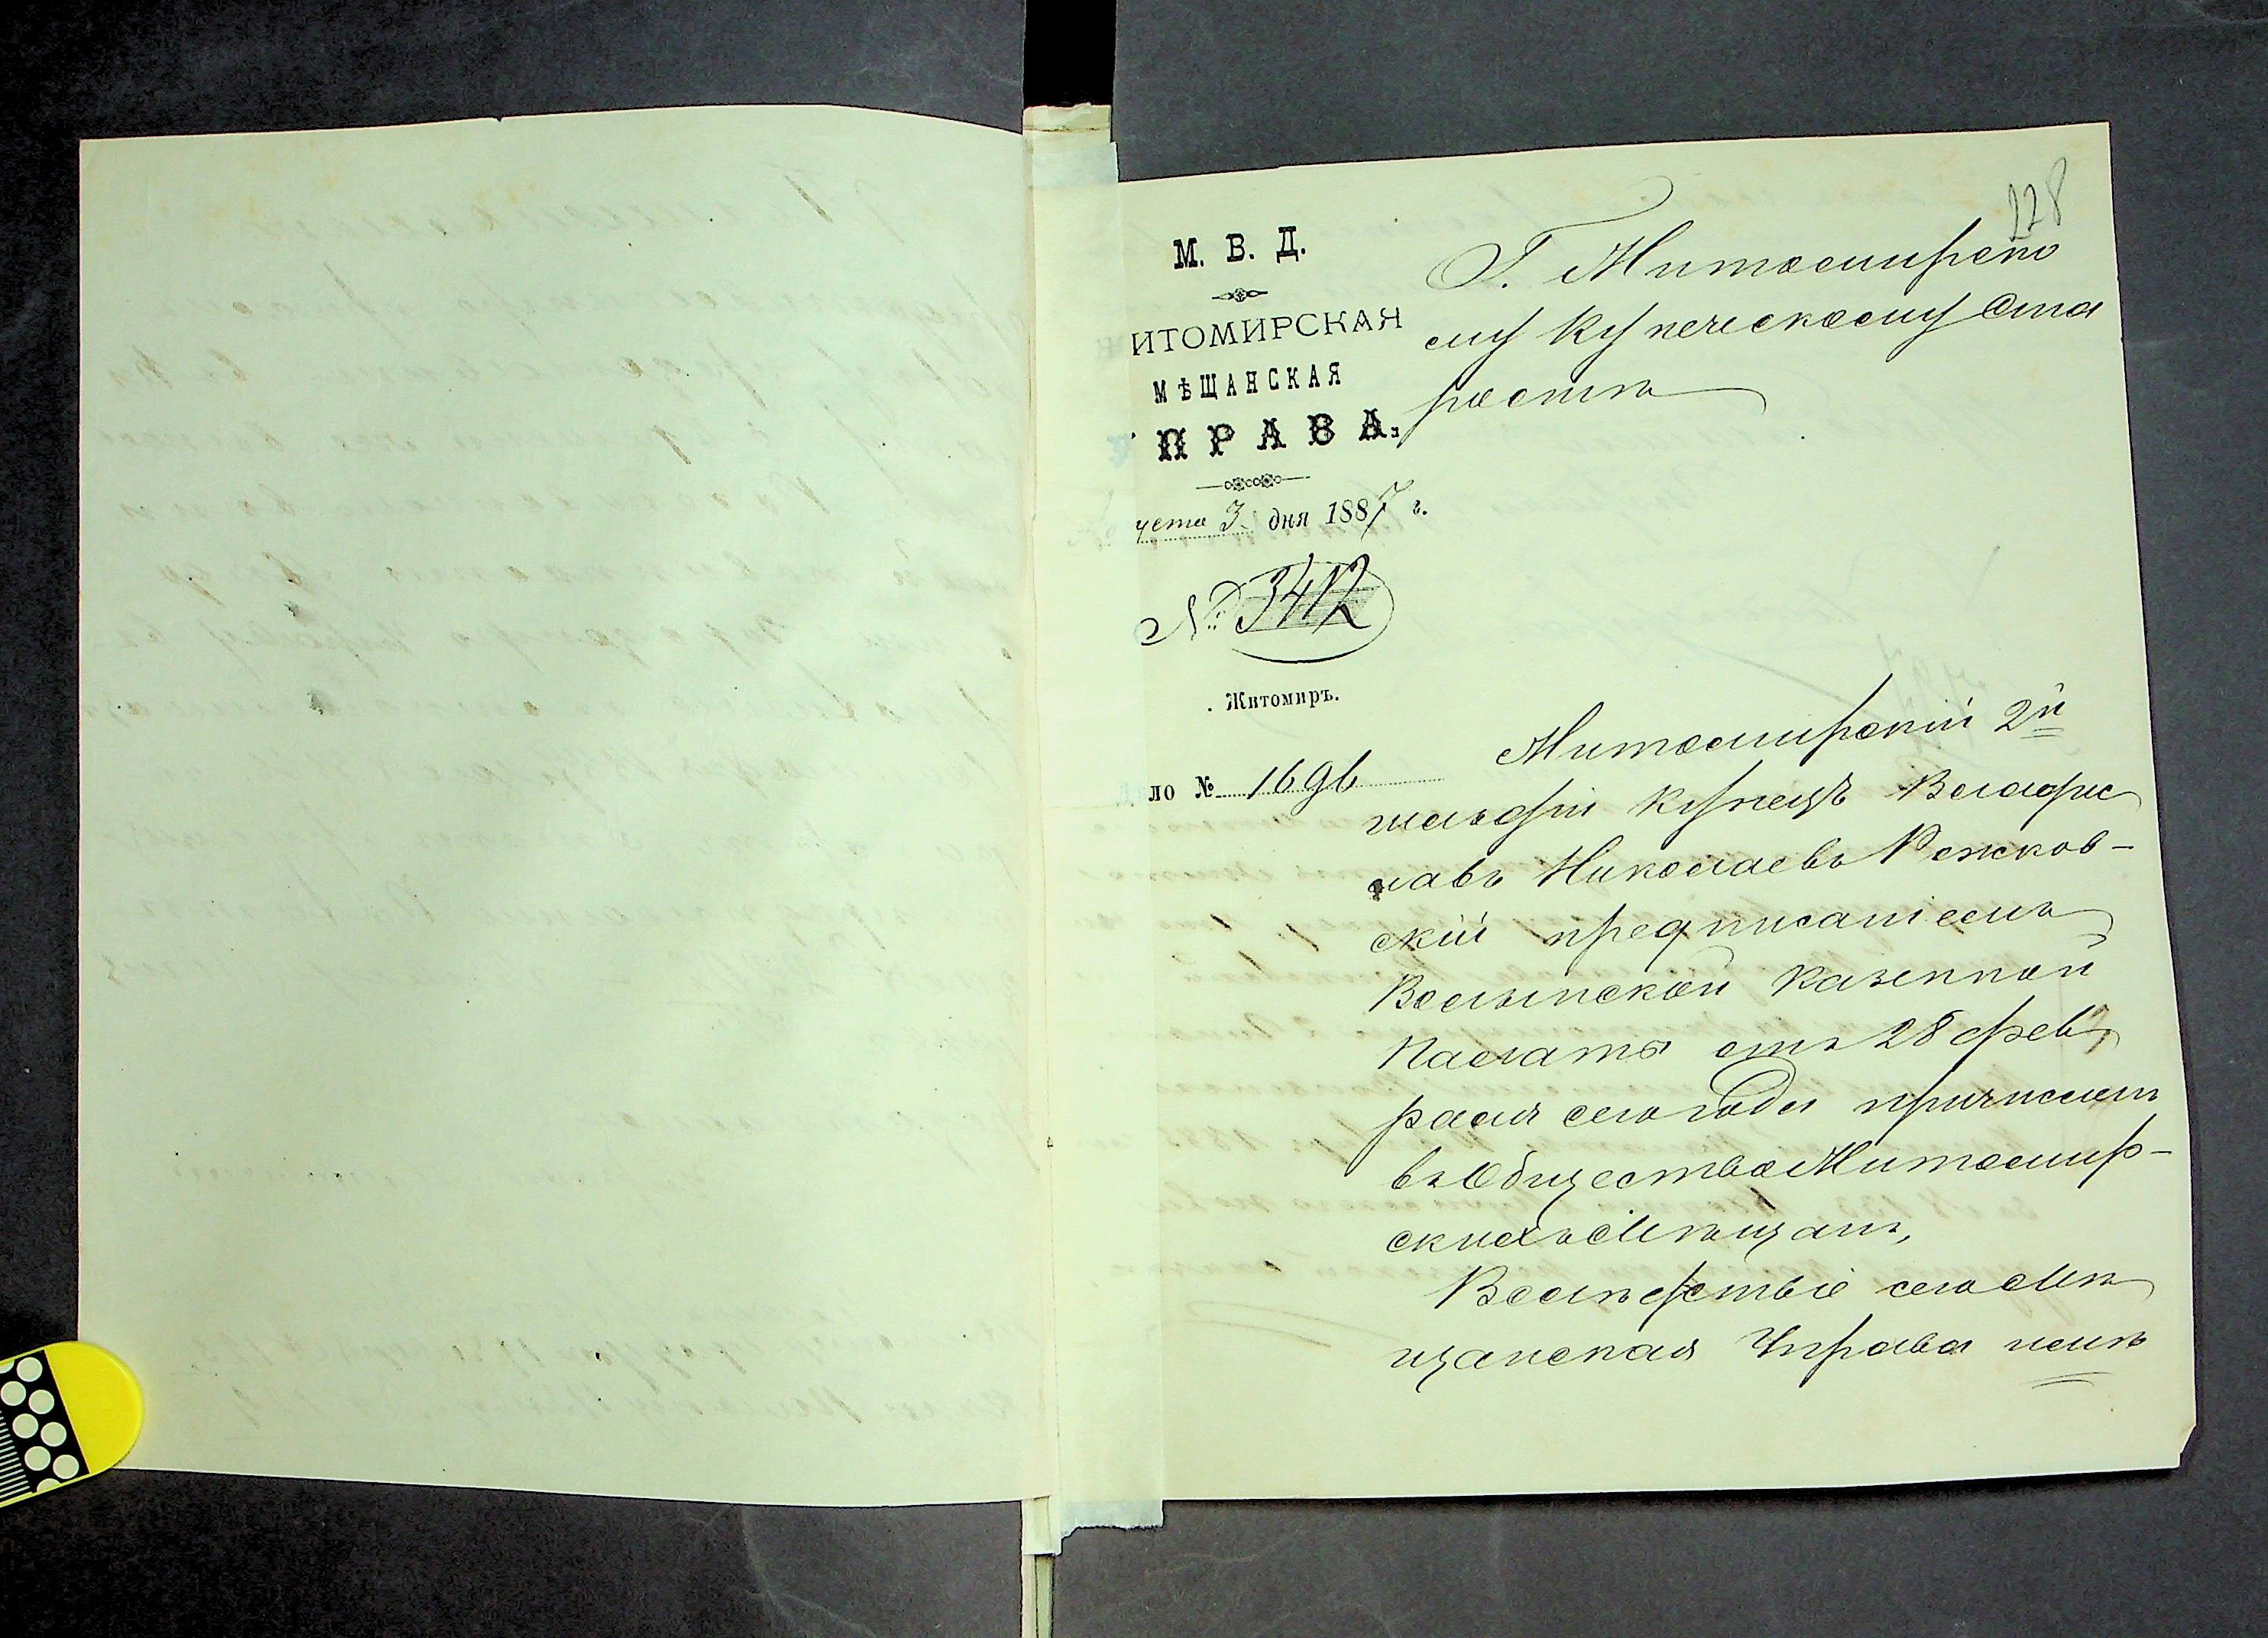 228
М. В. Д.
ИТОМИРСКАЯ
МѢЩАНСКАЯ
УПРАВА.
уста 3 дня 1887 г.
№ 3412
. Житомиръ.
ло № 1696
Г. Житомирско
му Купеческому Ста
ростѣ
Житомирскій 2й
гильдіи купецъ Владис
лавъ Николаевъ Режков-
скій предписаніемъ
Волынской Казенной
Палаты отъ 28 фев
раля сего года причисленъ
въ Общество Житомир-
скихъ мѣщанъ,
Вслѣдствіе сего Мѣ
щанская Управа имѣ